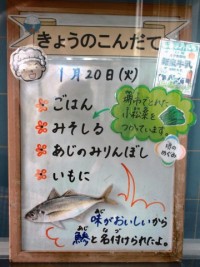 きょうのこんだて
1月20日(火)
ごはん
みそしる
あじのみりんぼし
いもに
でとれた
小松菜を
つかっています。
海の
めぐみ
味がおいしいから
鯵と名付けられたよ。